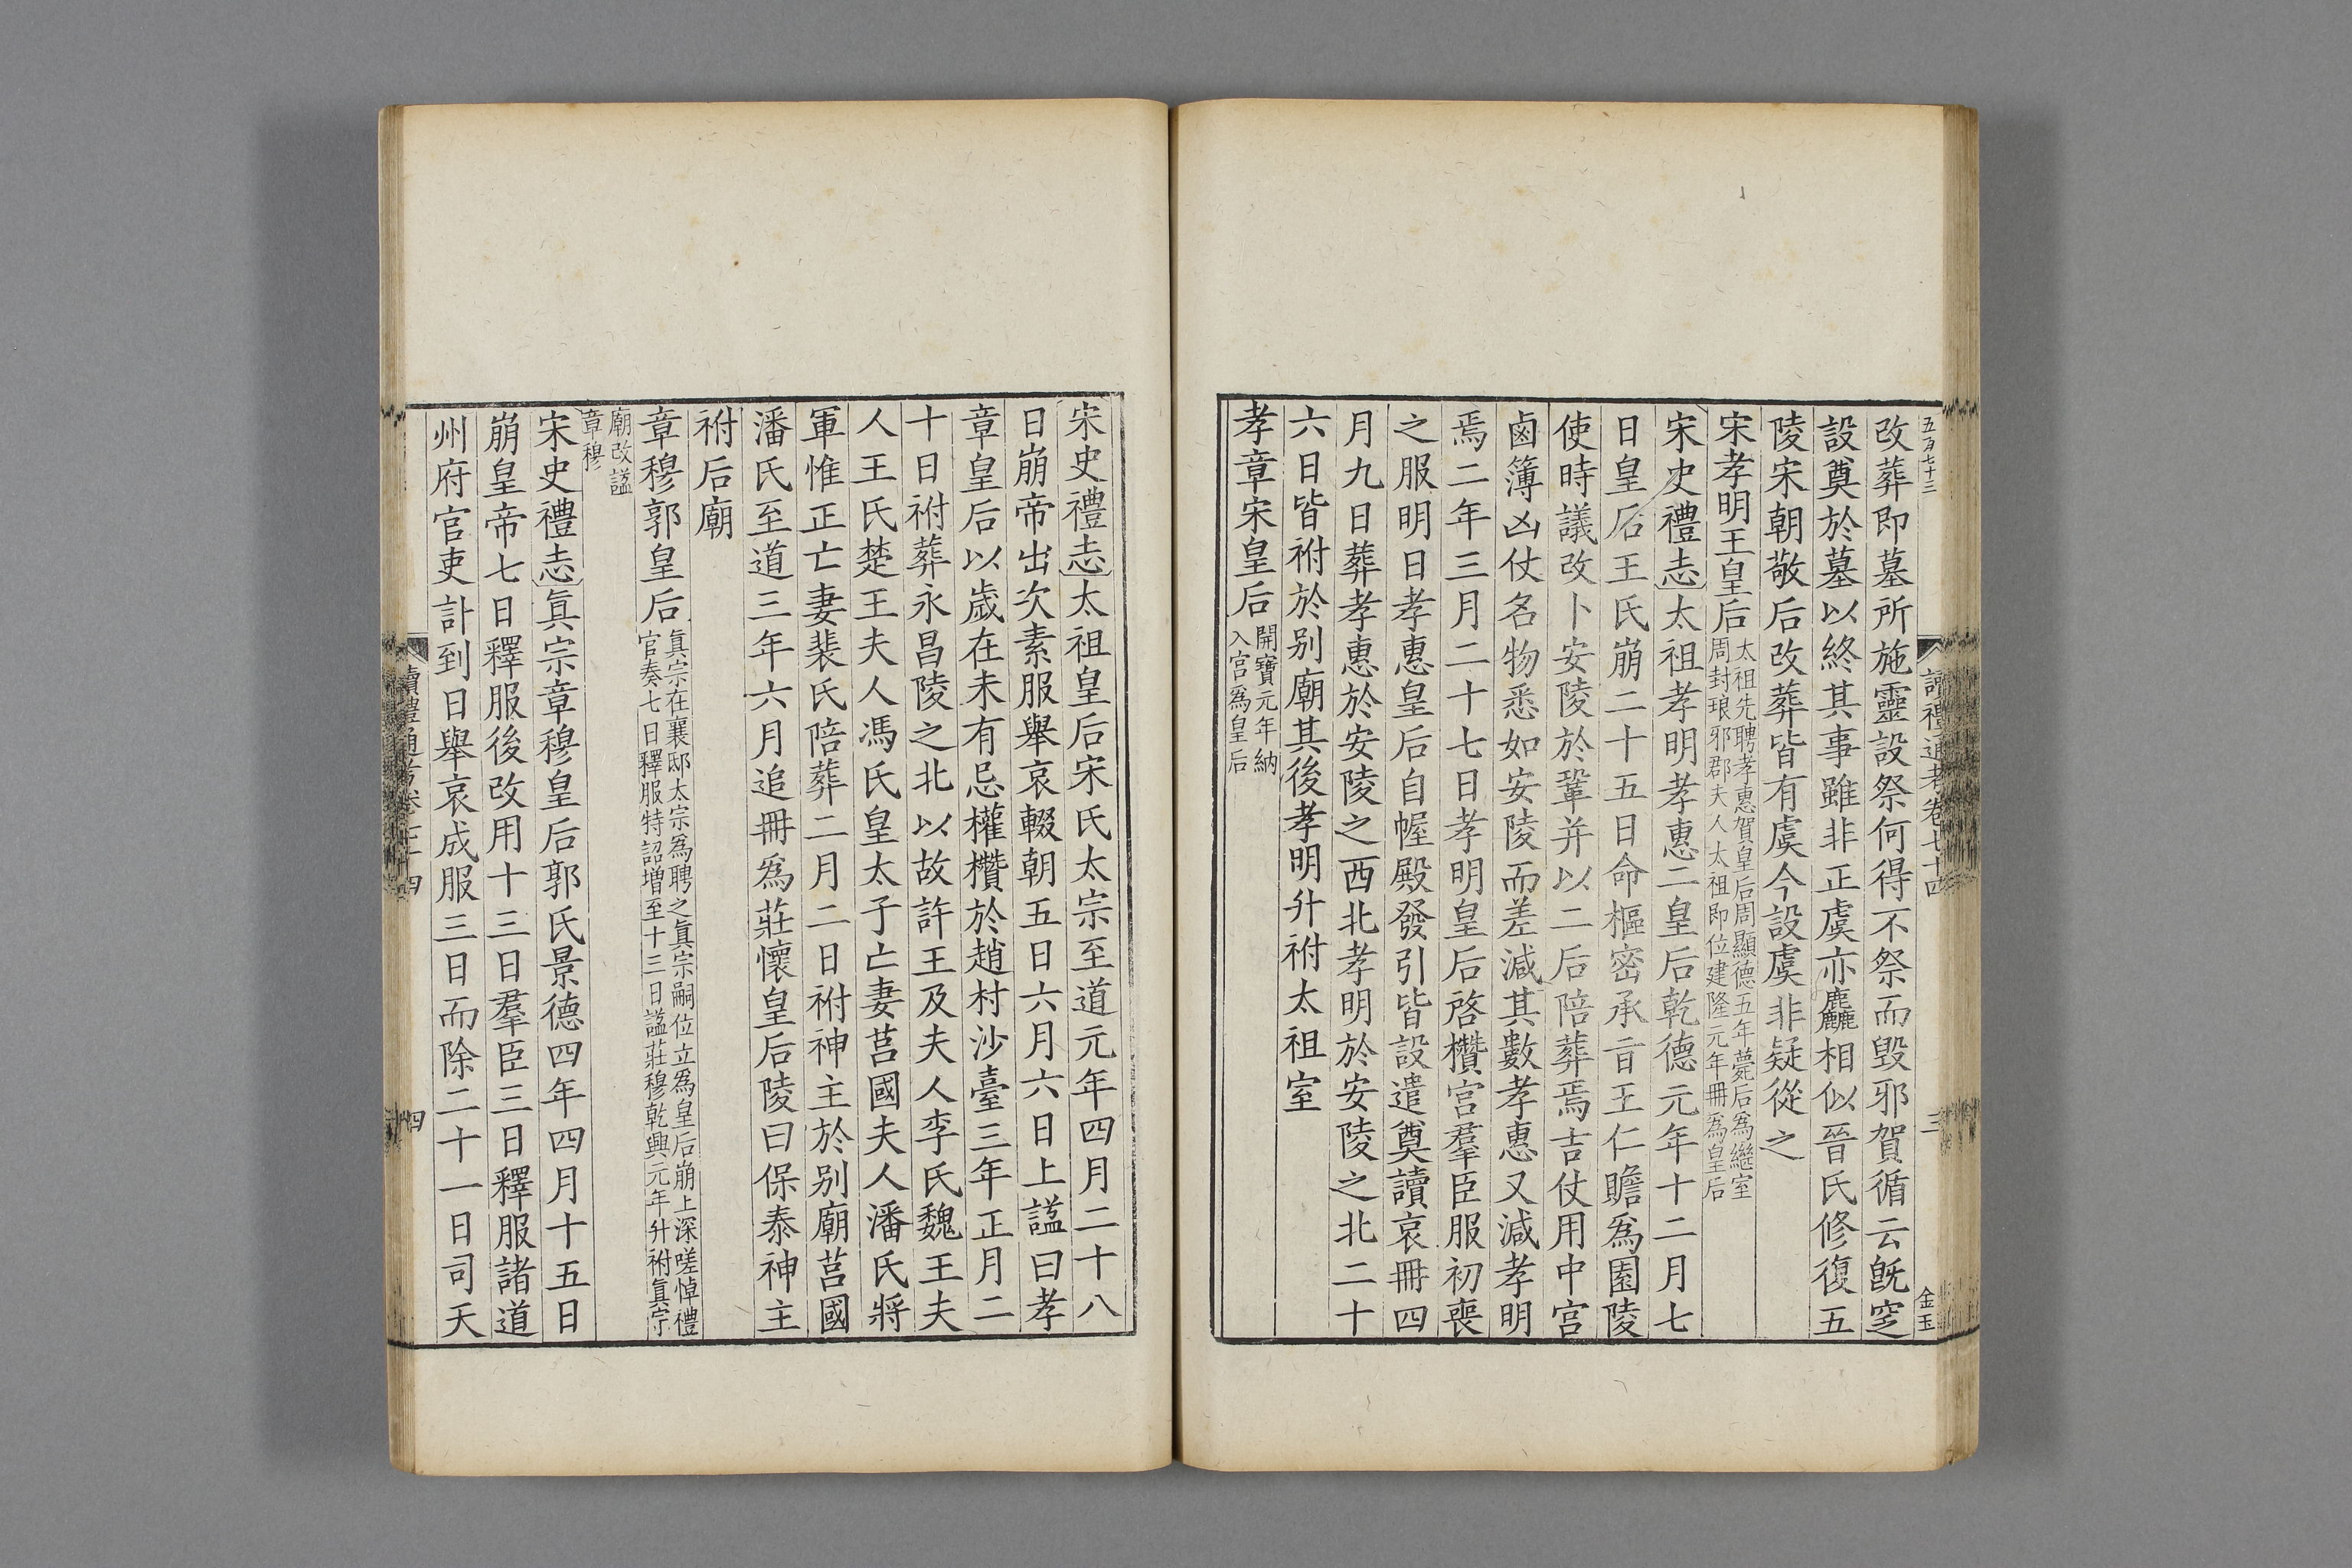 五百七十三
讀禮通考卷七十四
三
金玉
改葬即墓所施靈設祭何得不祭而毀邪賀循云旣窆
設奠於墓以終其事雖非正虞亦麤相似晉氏修復五
陵宋朝敬后改葬皆有虞今設虞非疑從之
宋孝明王皇后太祖先聘孝惠賀皇后周顯德五年薨后爲繼室
周封琅邪郡夫人太祖即位建隆元年冊爲皇后
宋史禮志太祖孝明孝惠二皇后乾德元年十二月七
日皇后王氏崩二十五日命樞密承旨王仁贍爲園陵
使時議改卜安陵於鞏并以二后陪葬焉吉仗用中宮
鹵簿凶仗名物悉如安陵而差減其數孝惠又減孝明
焉二年三月二十七日孝明皇后啓欑宮羣臣服初喪
之服明日孝惠皇后自幄殿發引皆設遣奠讀哀冊四
月九日葬孝惠於安陵之西北孝明於安陵之北二十
六日皆祔於别廟其後孝明升祔太祖室
孝章宋皇后開寶元年納
入宮爲皇后
宋史禮志太祖皇后宋氏太宗至道元年四月二十八
日崩帝出次素服舉哀輟朝五日六月六日上諡曰孝
章皇后以歲在未有忌權欑於趙村沙臺三年正月二
十日祔葬永昌陵之北以故許王及夫人李氏魏王夫
人王氏楚王夫人馮氏皇太子亡妻莒國夫人潘氏將
軍惟正亡妻裴氏陪葬二月二日祔神主於别廟莒國
潘氏至道三年六月追冊爲莊懷皇后陵曰保泰神主
祔后廟
章穆郭皇后眞宗在襄邸太宗爲聘之眞宗嗣位立爲皇后崩上深嗟悼禮
官奏七日釋服特詔增至十三日諡莊穆乾興元年升祔眞宗
廟改諡
章穆
宋史禮志眞宗章穆皇后郭氏景德四年四月十五日
崩皇帝七日釋服後改用十三日羣臣三日釋服諸道
州府官吏訃到日舉哀成服三日而除二十一日司天
讀禮通考卷七十四
四